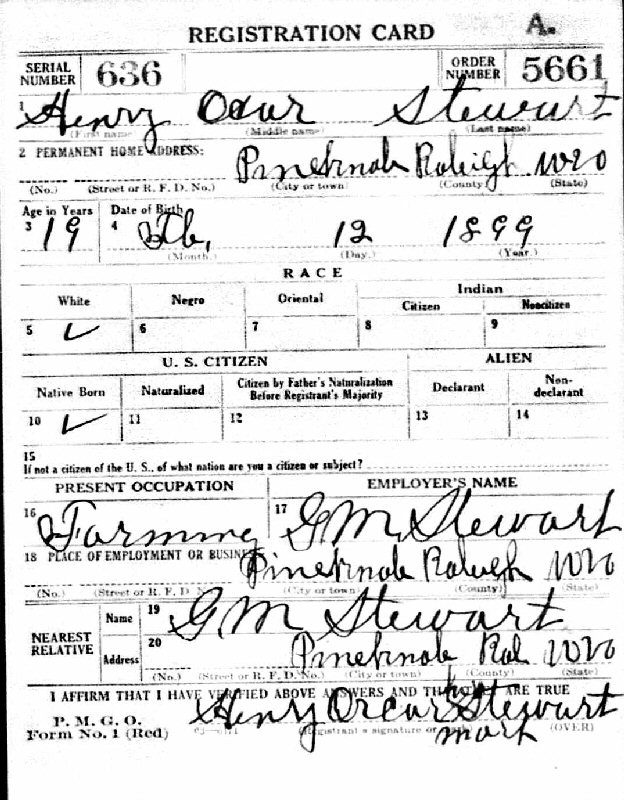 REGISTRATION CARD A.
SERIAL NUMBER 636 ORDER NUMBER 5661
1 Henry Ocur Stewart
(First name) (Middle name) (Last name)
2 PERMANENT HOME ADDRESS: Pineknob Raleigh WVa
(No.) (Street or R. F. D. No.) (City or town) (County) (State)
Age in Years Date of Birth
3 19 4 Feb. 12 1899
(Month.) (Day.) (Year.)
RACE
White Negro Oriental Indian
Citizen Noncitizen
5 ✓ 6 7 8 9
U. S. CITIZEN ALIEN
Native Born Naturalized Citizen by Father's Naturalization Before Registrant's Majority Declarant Non-declarant
10 ✓ 11 12 13 14
15
If not a citizen of the U. S., of what nation are you a citizen or subject?
PRESENT OCCUPATION EMPLOYER'S NAME
16 Farming 17 G. M. Stewart
18 PLACE OF EMPLOYMENT OR BUSINESS Pineknob Raleigh WVa
(No.) (Street or R. F. D. (City or town) (County) (State)
NEAREST RELATIVE Name 19 G. M Stewart
Address 20 Pineknob Ral WVa
(No.) (Street or R. F. D. No.) (City or town) (County) (State)
I AFFIRM THAT I HAVE VERIFIED ABOVE ANSWERS AND THAT ARE TRUE
P. M. G. O.
Form No. 1 (Red) Henry Orcur Stewart
(Registrant's signature or mark (OVER)